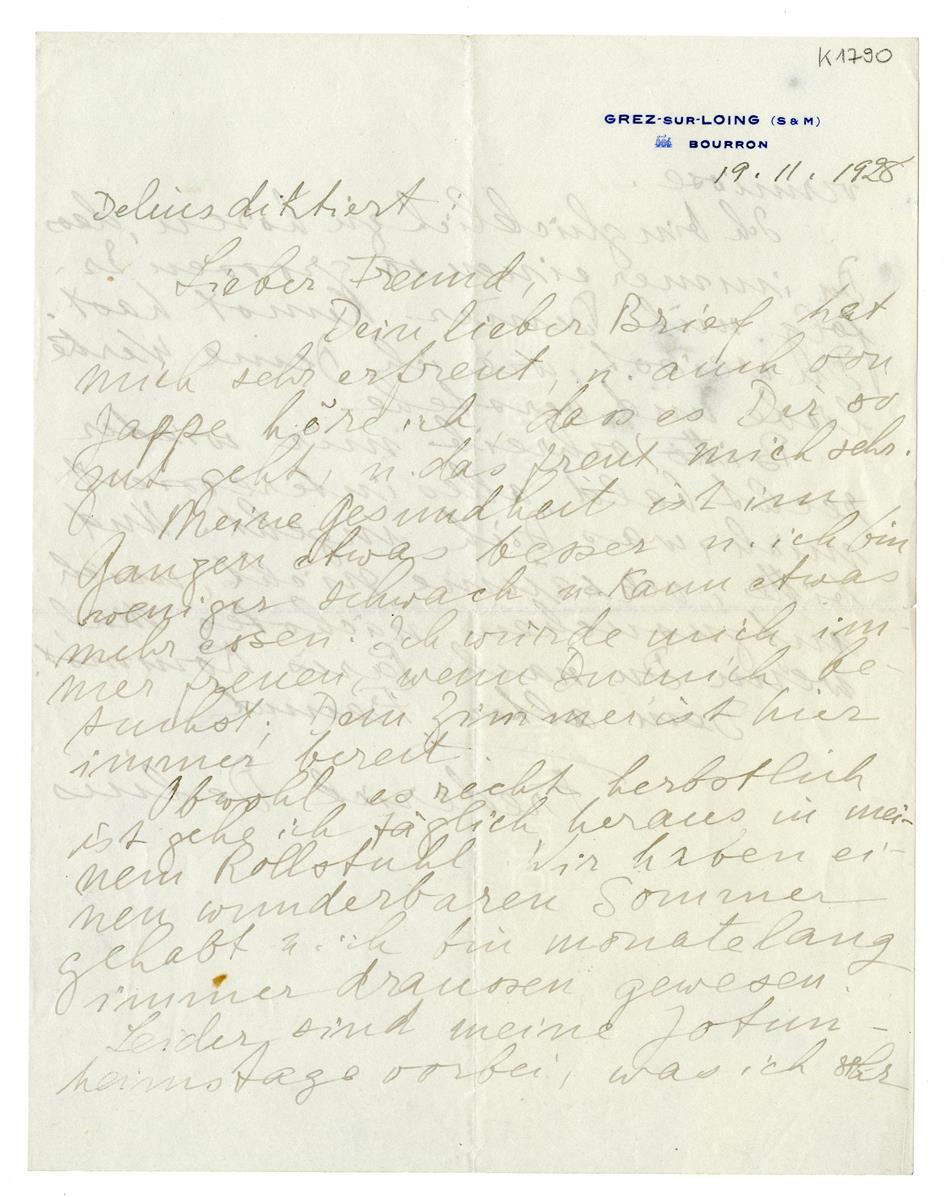 K1790
GREZ-SUR-LOING (S & M)
BOURRON
19. 11. 1928
Delius diktiert:
Lieber Freund,
Dein lieber Brief hat
mich sehr erfreut, u. auch von
Jappe höre ich, dass es Dir so
gut geht, u. das freut mich sehr.
Meine Gesundheit ist im
Ganzen etwas besser u. ich bin
weniger schwach u. kann etwas
mehr essen. Ich würde mich im-
mer freuen, wenn Du mich be-
suchst; Dein Zimmer ist hier
immer bereit.
Obwohl es recht herbstlich
ist gehe ich täglich heraus in mei-
nem Rollstuhl. Wir haben ei-
nen wunderbaren Sommer
gehabt u. ich bin monatelang
immer draussen gewesen.
Leider sind meine Jotun-
heimstage vorbei, was ich sehr